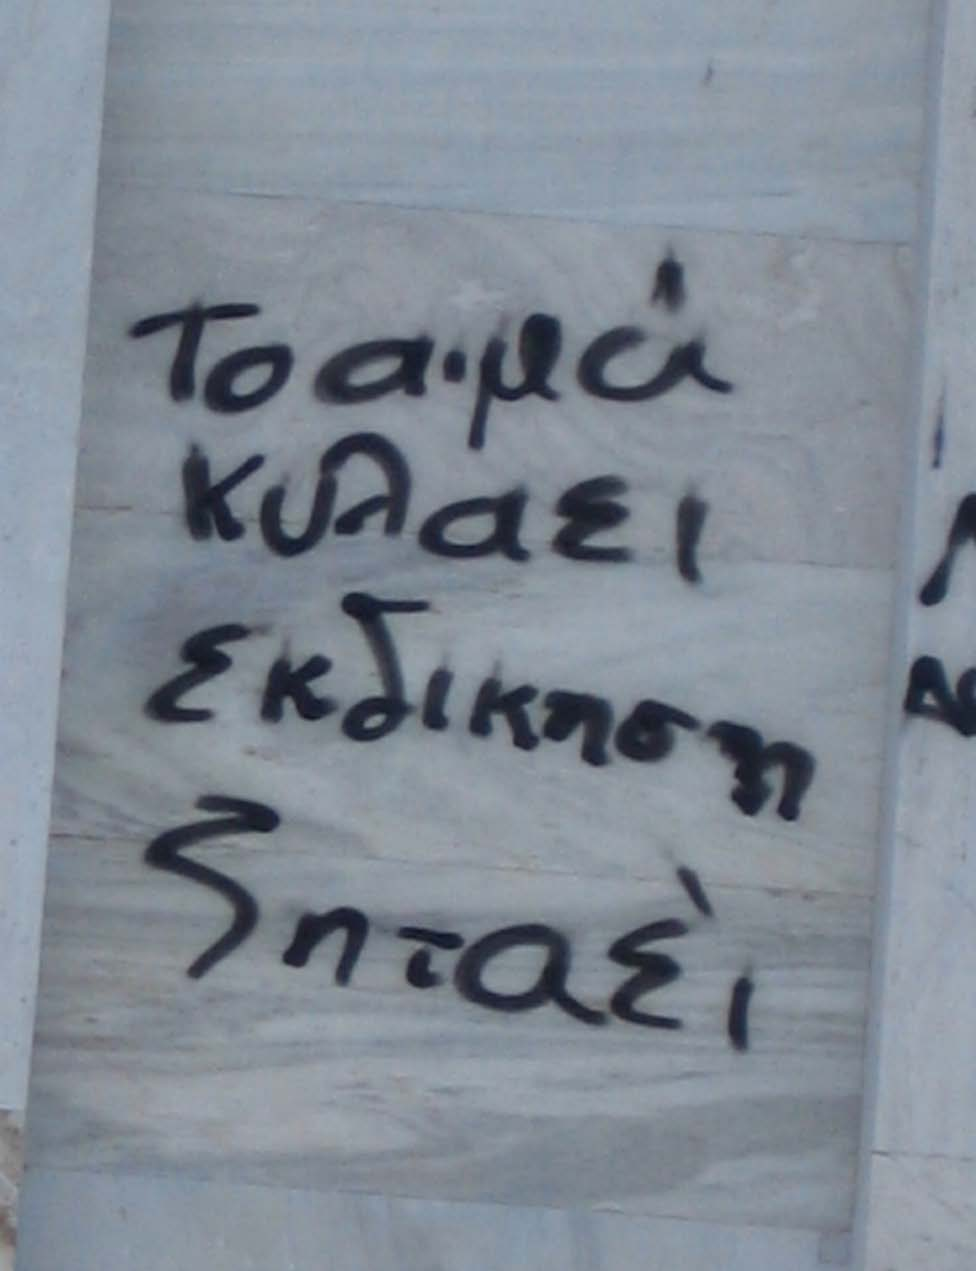 Το αιμά
κυλαει
εκδικηση
ζηταέι